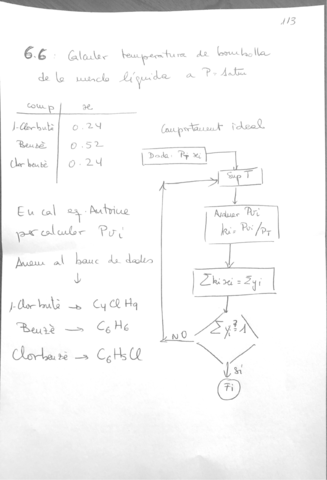 113
6.6. Calcular temperatura de bombolla
de la mescla líquida a P. 1atm
comp x
1-Clorbutà 0.24
Benzè 0.52
Clorbenzè 0.24
Comportament ideal
Dada: PT xi
Sup T
Antoine Pvi
ki = Pvi/PT
Σkixi = Σyi
Σyi ?= 1
NO
Si
Fi
En cal eq. Antoine
per calcular Pvi
Anem al banc de dades
1-Clorbutà → C4ClH9
Benzè → C6H6
Clorbenzè → C6H5Cl